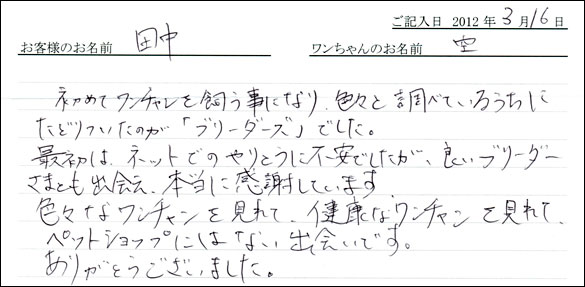 ご記入日 2012 年 3 月 16 日
お客様のお名前 田中 ワンちゃんのお名前 空
初めてワンチャンを飼う事になり、色々と調べているうちに
たどりついたのが「ブリーダーズ」でした。
最初は、ネットでのやりとりに不安でしたが、良いブリーダー
さまとも出会え、本当に感謝しています
色々なワンチャンを見れて、健康なワンチャンを見れて、
ペットショップにはない出会いです。
ありがとうございました。